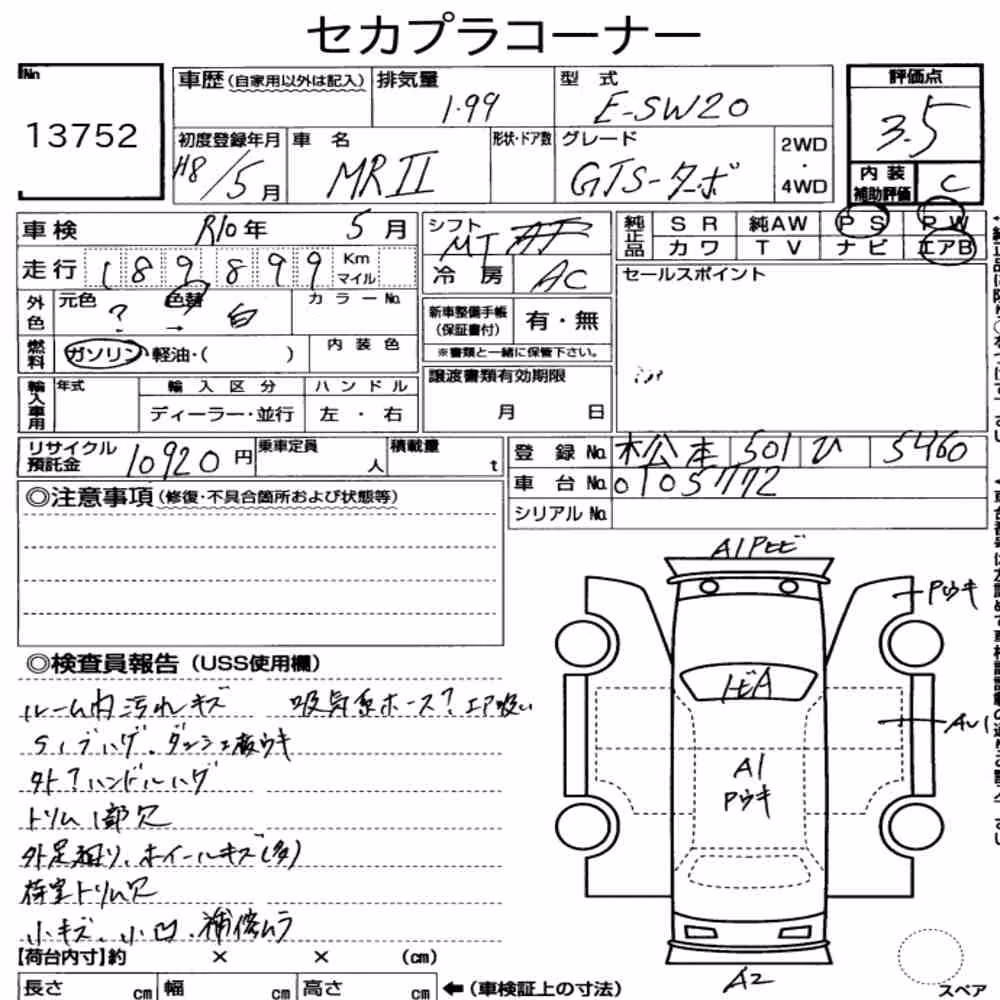 セカプラコーナー
No.
13752
車歴(自家用以外は記入) 排気量 1.99 型式 E-SW20
初度登録年月 H8/5月 車名 MRⅡ 形状・ドア数 グレード GTS-ターボ 2WD・4WD
評価点 3.5
内装補助評価 C
車検 R10年 5月
走行 189899 Km マイル
外色 元色 ? → 色替 白 カラーNo.
燃料 ガソリン・軽油・( ) 内装色
輸入車用 年式 輸入区分 ディーラー・並行 ハンドル 左・右
シフト MT AF
冷房 AC
新車整備手帳(保証書付) 有・無
※書類と一緒に保管下さい。
譲渡書類有効期限 月 日
純正品 SR 純AW PS PW
カワ TV ナビ エアB
セールスポイント
リサイクル預託金 10920円 乗車定員 人 積載量 t
登録No. 松本 501 ひ 5460
車台No. 0105772
シリアルNo.
◎注意事項(修復・不具合箇所および状態等)
◎検査員報告(USS使用欄)
ルーム内汚れキズ 吸気系ホース?エア吸い
ハゲ、ダッシュ板ウキ
外?ハンドルハゲ
トリム1部欠
外足廻り、ホイールキズ(多)
荷室トリム欠
小キズ、小凹、補修ムラ
【荷台内寸】約 × × (cm)
長さ cm 幅 cm 高さ cm ←(車検証上の寸法)
A1Pヒビ
Pウキ
トビA
AU1
A1
Pウキ
A2
スペア